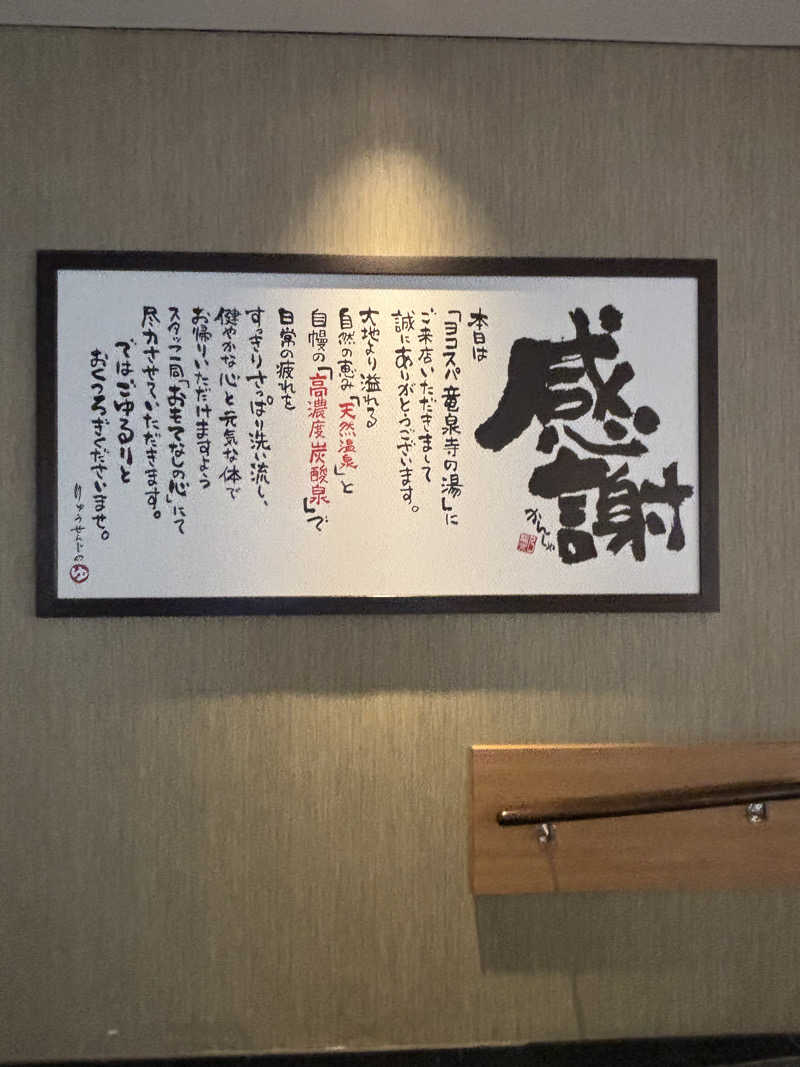 感謝
かんしゃ
本日は
「ヨコスパ竜泉寺の湯」に
ご来店いただきまして
誠にありがとうございます。
大地より溢れる
自然の恵み「天然温泉」と
自慢の「高濃度炭酸泉」で
日常の疲れを
すっきりさっぱり洗い流し、
健やかな心と元気な体で
お帰りいただけますよう
スタッフ一同「おもてなしの心」にて
尽力させていただきます。
ではごゆるりと
おくつろぎくださいませ。
りゅうせんじの